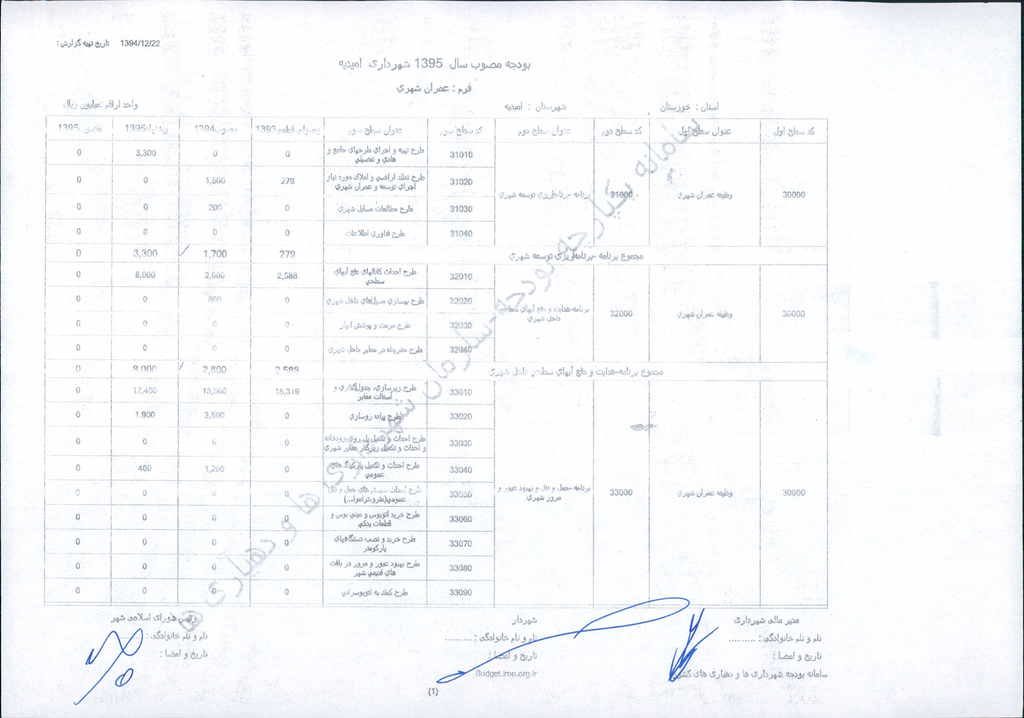 تاریخ تهیه گزارش : 1394/12/22
بودجه مصوب سال 1395 شهرداری امیدیه
فرم : عمران شهری
استان : خوزستان شهرستان : امیدیه واحد ارقام میلیون ریال
کد سطح اول عنوان سطح اول کد سطح دوم عنوان سطح دوم کد سطح سوم عنوان سطح سوم 1393 مصوب 1394 1395 1395
30000 وظیفه عمران شهری 31000 برنامه برنامه‌ریزی توسعه شهری
31010 طرح تهیه و اجرای طرحهای جامع و هادی و تفصیلی 0 0 3,300 0
31020 طرح تملک اراضی و املاک مورد نیاز اجرای توسعه و عمران شهری 279 1,500 0 0
31030 طرح مطالعات مسایل شهری 0 200 0 0
31040 طرح فناوری اطلاعات 0 0 0 0
مجموع برنامه -برنامه‌ریزی توسعه شهری 279 1,700 3,300 0
30000 وظیفه عمران شهری 32000 برنامه هدایت و دفع آبهای سطحی داخل شهری
32010 طرح احداث کانالهای دفع آبهای سطحی 2,588 2,000 8,000 0
32020 طرح بهسازی مسیلهای داخل شهری 0 800 0 0
32030 طرح مرمت و پوشش انهار 0 0 0 0
32040 طرح متفرقه در معابر داخل شهری 0 0 0 0
مجموع برنامه -هدایت و دفع آبهای سطحی داخل شهری 2,588 2,800 8,000 0
30000 وظیفه عمران شهری 33000 برنامه حمل و نقل و بهبود عبور و مرور شهری
33010 طرح زیرسازی، جدولگذاری و آسفالت معابر 15,319 13,000 17,400 0
33020 طرح پیاده روسازی 0 3,500 1,900 0
33030 طرح احداث و تکمیل پل روی رودخانه و احداث و تکمیل زیرگذر معابر شهری 0 0 0 0
33040 طرح احداث و تکمیل پارکینگ های عمومی 0 1,200 400 0
33050 طرح احداث سیستم های حمل و نقل عمومی(مترو،تراموا،..) 0 0 0 0
33060 طرح خرید اتوبوس و مینی بوس و قطعات یدکی 0 0 0 0
33070 طرح خرید و نصب دستگاههای پارکومتر 0 0 0 0
33080 طرح بهبود عبور و مرور در بافت های قدیمی شهر 0 0 0 0
33090 طرح کمک به اتوبوسرانی 0 0 0 0
سامانه یکپارچه بودجه-سازمان شهرداری ها و دهیاری ها
مدیر مالی شهرداری شهردار رئیس شورای اسلامی شهر
نام و نام خانوادگی : .......... نام و نام خانوادگی : .......... نام و نام خانوادگی :
تاریخ و امضا : تاریخ و امضا : تاریخ و امضا :
سامانه بودجه شهرداری ها و دهیاری های کشور Budget.imo.org.ir
(1)